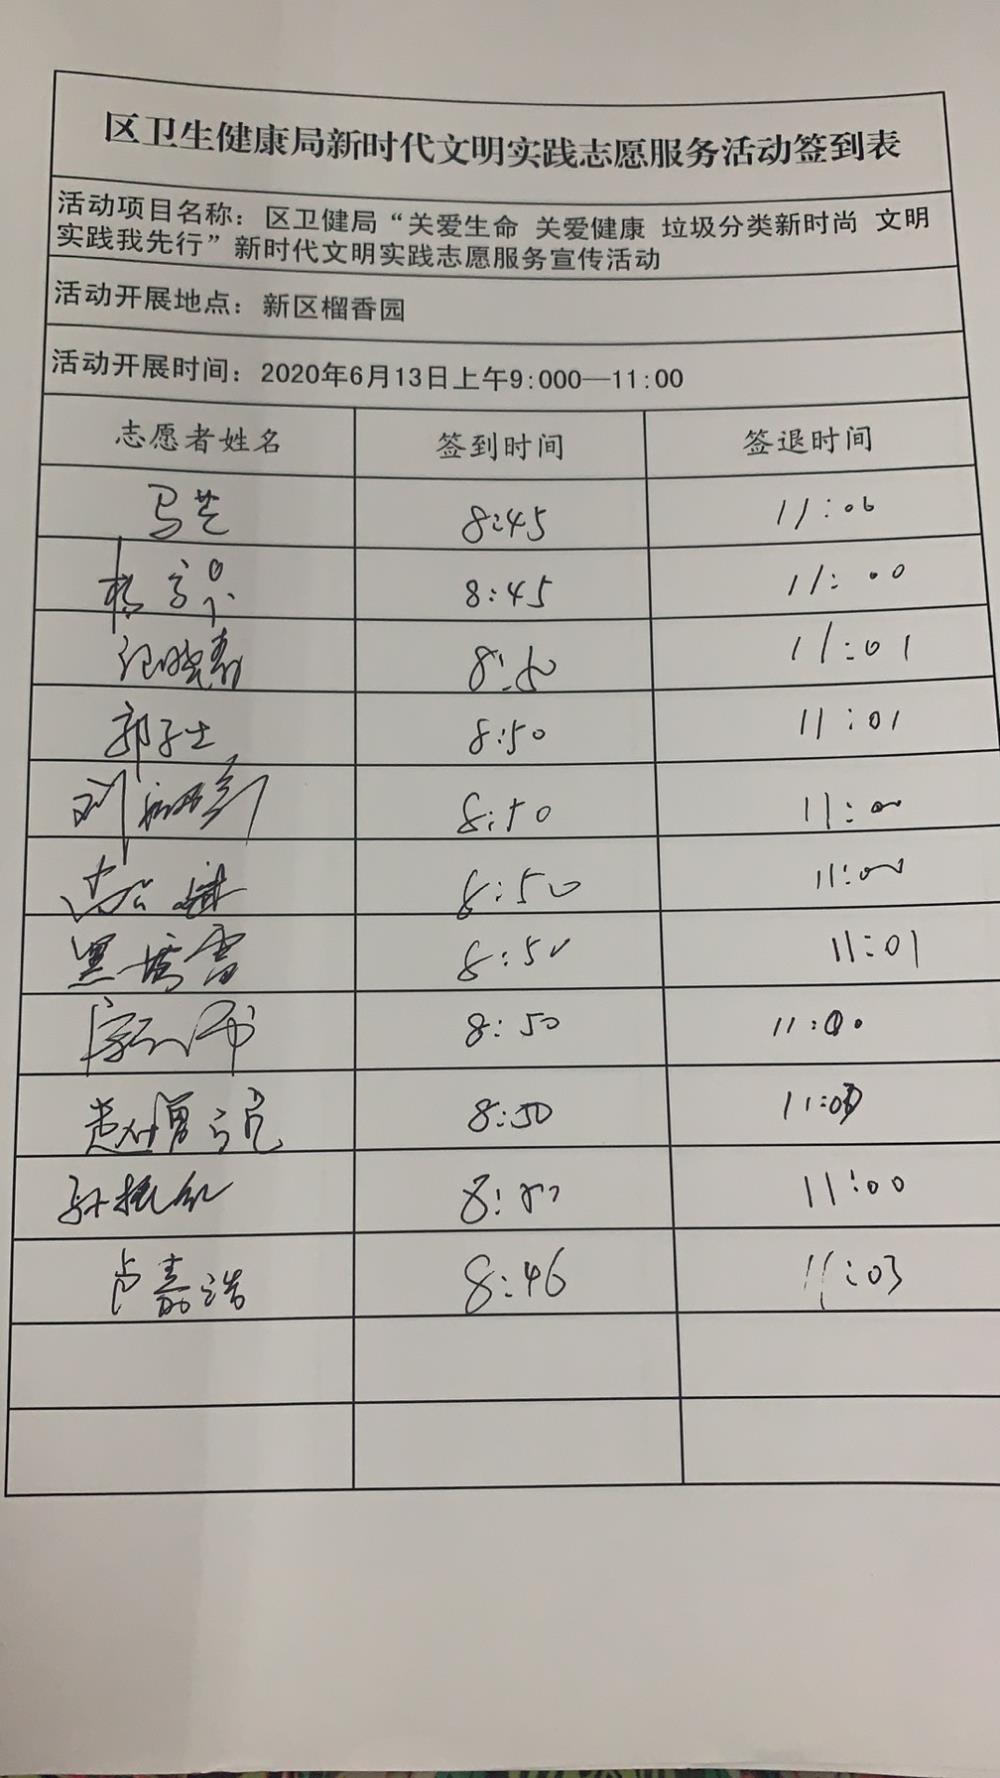 区卫生健康局新时代文明实践志愿服务活动签到表
活动项目名称：区卫健局“关爱生命 关爱健康 垃圾分类新时尚 文明
实践我先行”新时代文明实践志愿服务宣传活动
活动开展地点：新区榴香园
活动开展时间：2020年6月13日上午9:000—11:00
志愿者姓名 签到时间 签退时间
马芝 8:45 11:00
8:45 11:00
8:50 11:01
郭子士 8:50 11:01
刘 8:50 11:00
8:50 11:00
黑 8:50 11:01
8:50 11:00
8:50
孙 11:00
卢嘉浩 8:46 11:03